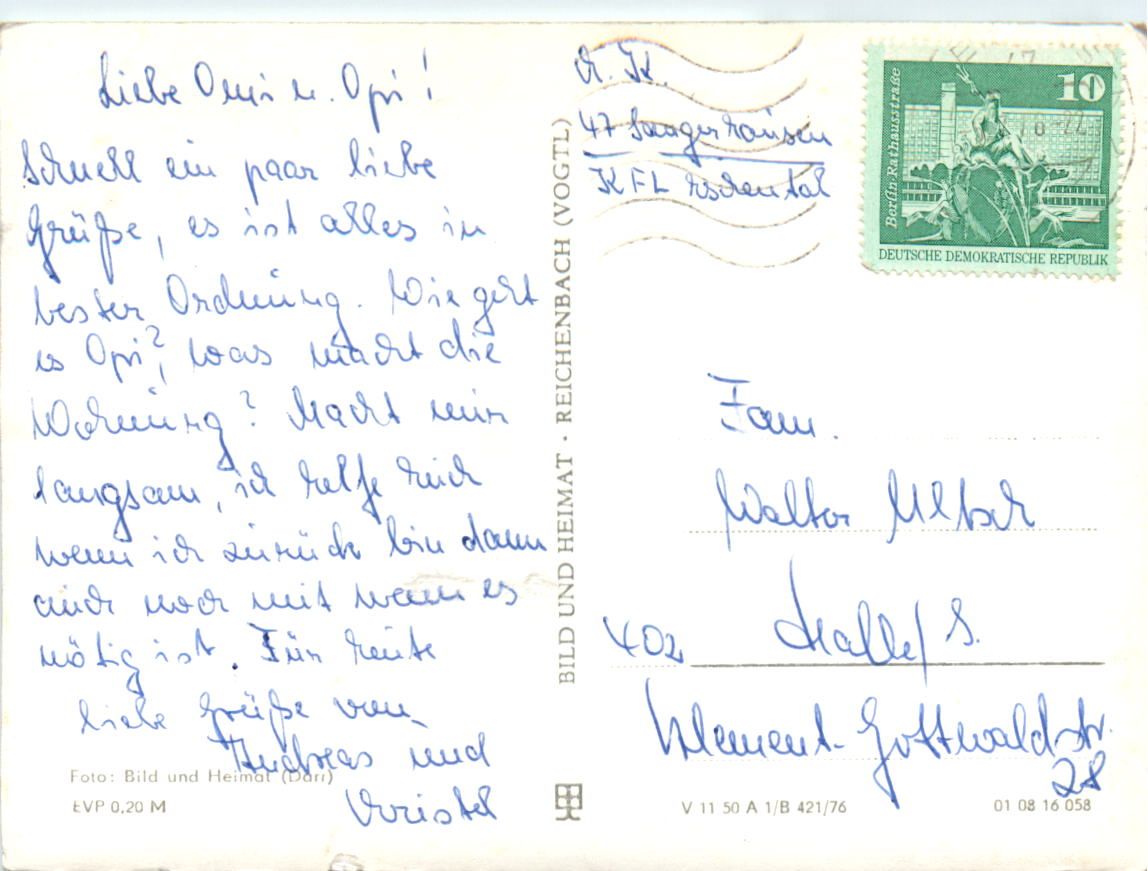 Liebe Omi u. Opi!
Schnell ein paar liebe
Grüße, es ist alles in
bester Ordnung. Wie geht
es Opi?, was macht die
Wohnung? Macht nur
langsam, ich helfe Euch
wenn ich zurück bin dann
auch noch mit wenn es
nötig ist. Für heute
liebe Grüße von
Andreas und
Christel
Foto: Bild und Heimat (Darr)
EVP 0,20 M
BILD UND HEIMAT · REICHENBACH (VOGTL)
A. K.
47 Sangerhausen
KFL
Berlin-Rathausstraße
10
DEUTSCHE DEMOKRATISCHE REPUBLIK
Fam.
Walter Ultsch
402 Halle/S.
Klement-Gottwaldstr.
28
V 11 50 A 1/B 421/76
01 08 16 058